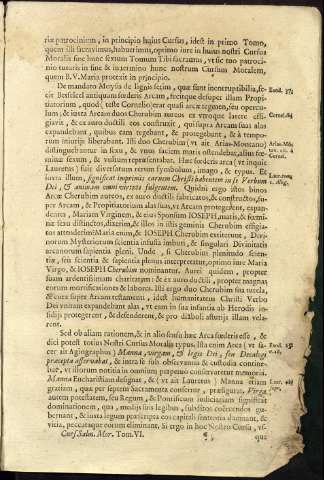 riæ patrocinium, in principio hujus Cursus, idest in primo Tomo,
quem illi sacravimus, habuerimus, optimo jure in huius nostri Cursus
Moralis fine hunc sextum Tomum Tibi sacramus, vt sic tuo patroci-
nio tutaris in fine & in termino hunc nostrum Cursum Moralem,
quem B.V. Maria protexit in principio.
De mandato Moysis de lignis setim, quæ sunt incorruptibilia, fe-
cit Beseleel antiquam fœderis Arcam, fecitque desuper illam Propi-
tiatorium, quod (teste Cornelio) erat quasi arcæ tegmen, seu opercu-
lum; & iuxta Arcam duos Cherubim aureos ex vtroque latere effi-
giavit, & ex auro ductili eos construxit, qui supra Arcam suas alas
expandebant, quibus eam tegebant, & protegebant, & à tempo-
rum iniurijs liberabant. Isti duo Cherubim (vt ait Arias-Montano)
distinguebantur in sexu, & vnus faciem maris ostendebat, alius fœ-
minæ sexum, & vultum repræsentabat. Hæc fœderis arca (vt inquit
Lauretus) fuit diversarum rerum symbolum, imago, & typus. Et
iuxta illum, significat imprimis carnem Christi habentem in se Verbum
Dei, & animam omni virtute fulgentem. Quidni ergo istos binos
Arcæ Cherubim aureos, ex auro ductili fabricatos, & constructos, su-
per Arcam, & Propitiatorium alas suas, vt Arcam protegant, expan-
dentes, Mariam Virginem, & eius Sponsum IOSEPH, maris, & fœmi-
næ sexu distinctos, dixerim, & illos in istis geminis Cherubim effigia-
tos attendens? Maria enim, & IOSEPH Cherubim extitere, Divi-
norum Mysteriorum scientia insulsa imbuti, & singulari Divinitatis
arcanorum sapientia pleni. Unde, si Cherubim plenitudo scien-
tiæ, seu scientia & sapientia plenus interpretatur, optimo iure Maria
Virgo, & IOSEPH Cherubim nominantur. Aurei quidem, propter
suam ardentissimam charitatem: & ex auro ductili, propter magnas
eorum mortificationes & labores. Isti ergo duo Cherubim sua tutela,
& cura super Arcam testamenti, idest humanitatem Christi Verbo
Dei vnitam expandebant alas, vt eam in sua infantia ab Herodis in-
sidijs protegerent, & defenderent, & pro diaboli astutijs illam vela-
rent.
Sed ob aliam rationem, & in alio sensu hæc Arca fœderis esse, &
dici potest totius Nostri Cursus Moralis typus. Illa enim Arca (vt fa-
cer ait Agiographus) Manna, virgam, & legis Dei, seu Decalogi
præcepta asservabat, & intra se sub observantia & custodia contine-
bat, vt illorum notitia in omnium perpetuo conservaretur memoria.
Manna Eucharistiam designat, & (vt ait Lauretus) Manna etiam
gratiam, quæ per septem Sacramenta confertur, præfigurat. Virga
autem potestatem, seu Regum, & Pontificum iudiciariam significat
dominationem, qua, medijs suis legibus, subditos coërcendos gu-
bernant, & iuxta legum præscripta eos capitali sententia damnant, &
vitia, peccatáque eorum eliminant. Si ergo in hoc Nostro Cursu, vt-
Curs. Salm. Mor. Tom. VI.
que